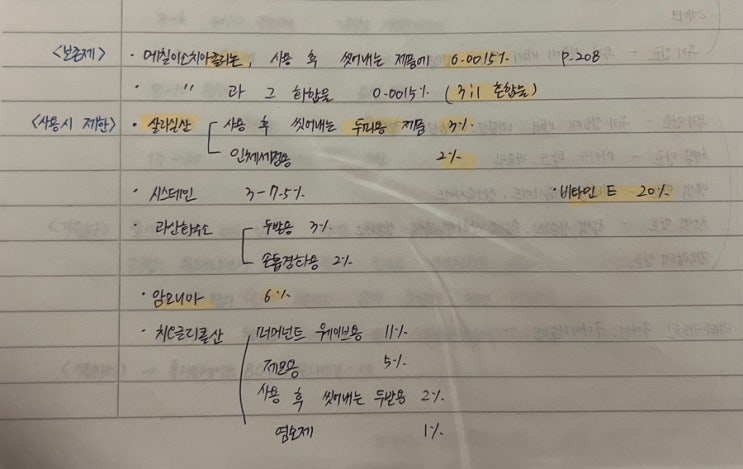 <보존제> · 메칠이소치아졸리논, 사용 후 씻어내는 제품에 0.0015% P.208
· " 과 그 혼합물 0.0015% (3:1 혼합물)
<사용시 제한> · 살리실산 사용 후 씻어내는 두피용 제품 3%
인체세정용 2%
· 시스테인 3-7.5% · 비타민 E - 20%
· 과산화수소 두발용 3%
손톱경화용 2%
· 암모니아 6%
· 치오글리콜산 퍼머넌트 웨이브용 11%
제모용 5%
사용 후 씻어내는 두발용 2%
염모제 1%